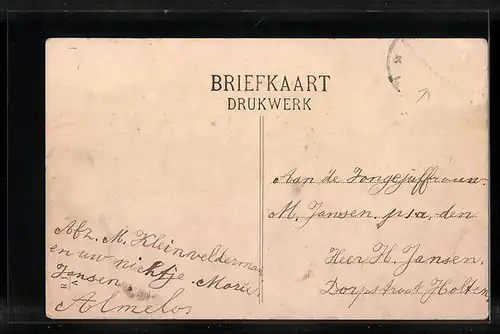 BRIEFKAART
DRUKWERK
Aan de Jongejuffrouw
M. Janssen. p/a. den
Heer H. Jansen.
Dorpstraat Holten
Afz. M. Kleinvelderman
en uw nichtje Marie
Jansen.
Almelo